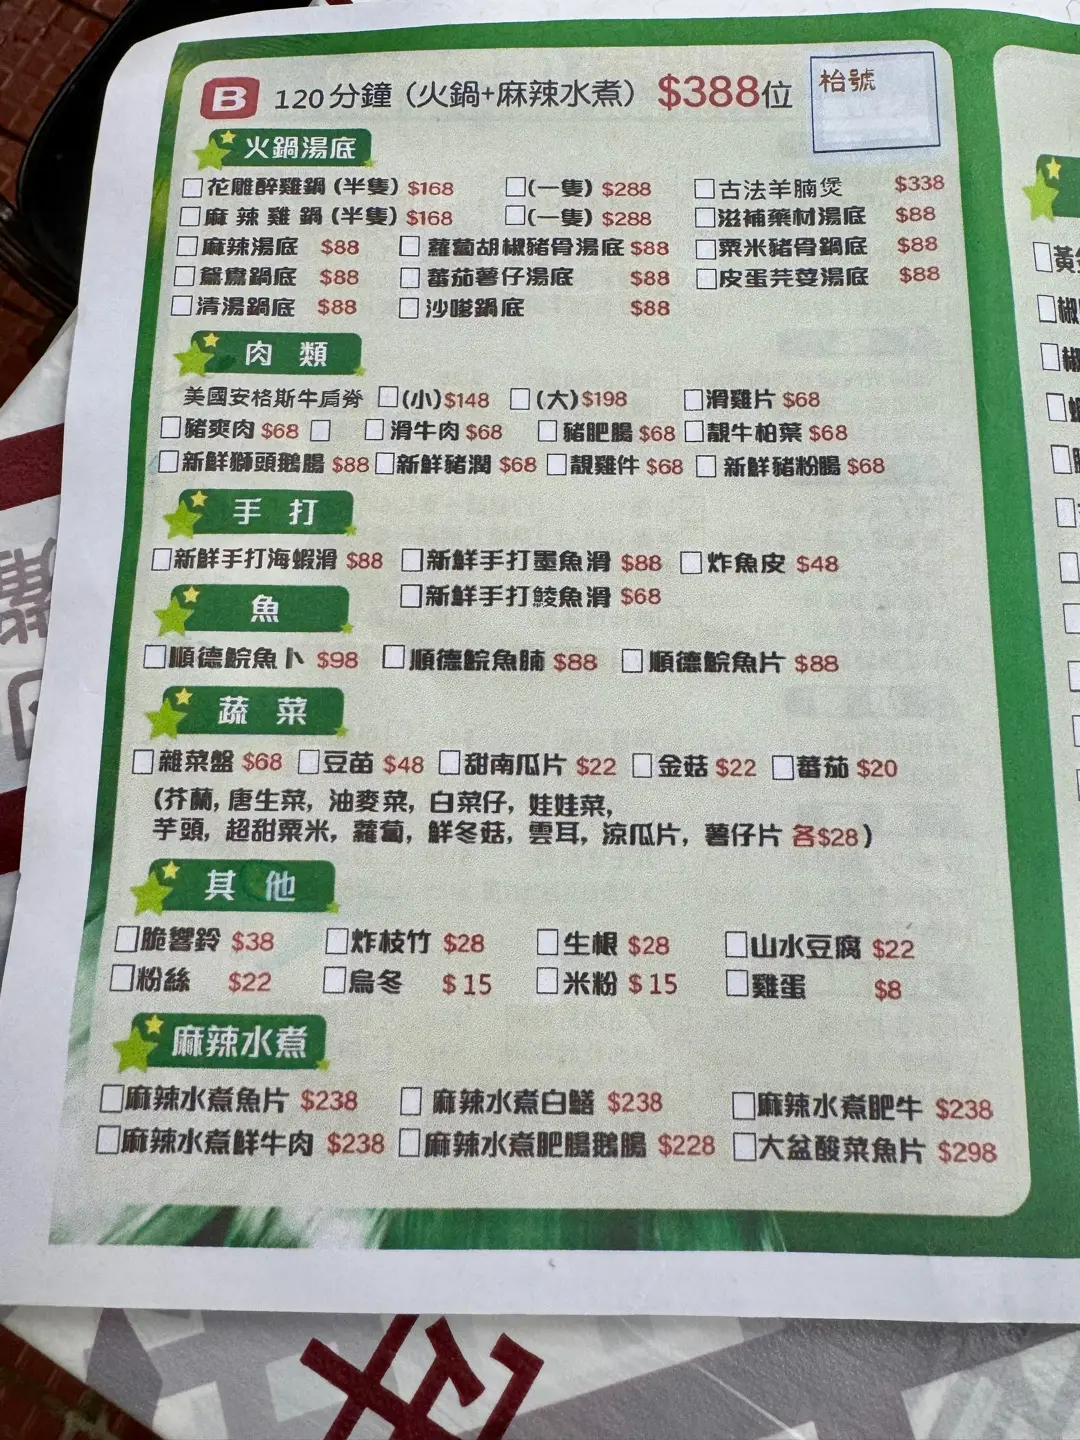 B 120分鐘（火鍋+麻辣水煮） $388位
枱號
火鍋湯底
花雕醉雞鍋（半隻）$168 (一隻) $288 古法羊腩煲 $338
麻辣雞鍋（半隻）$168 (一隻) $288 滋補藥材湯底 $88
麻辣湯底 $88 蘿蔔胡椒豬骨湯底 $88 粟米豬骨鍋底 $88
鴛鴦鍋底 $88 蕃茄薯仔湯底 $88 皮蛋芫荽湯底 $88
清湯鍋底 $88 沙嗲鍋底 $88
肉類
美國安格斯牛肩脊 (小)$148 (大)$198 滑雞片 $68
豬爽肉 $68 滑牛肉 $68 豬肥腸 $68 靚牛柏葉 $68
新鮮獅頭鵝腸 $88 新鮮豬潤 $68 靚雞件 $68 新鮮豬粉腸 $68
手打
新鮮手打海蝦滑 $88 新鮮手打墨魚滑 $88 炸魚皮 $48
新鮮手打鯪魚滑 $68
魚
順德鯇魚卜 $98 順德鯇魚腩 $88 順德鯇魚片 $88
蔬菜
雜菜盤 $68 豆苗 $48 甜南瓜片 $22 金菇 $22 蕃茄 $20
(芥蘭, 唐生菜, 油麥菜, 白菜仔, 娃娃菜,
芋頭, 超甜粟米, 蘿蔔, 鮮冬菇, 雲耳, 涼瓜片, 薯仔片 各$28)
其他
脆響鈴 $38 炸枝竹 $28 生根 $28 山水豆腐 $22
粉絲 $22 烏冬 $15 米粉 $15 雞蛋 $8
麻辣水煮
麻辣水煮魚片 $238 麻辣水煮白鱔 $238 麻辣水煮肥牛 $238
麻辣水煮鮮牛肉 $238 麻辣水煮肥腸鵝腸 $228 大盆酸菜魚片 $298